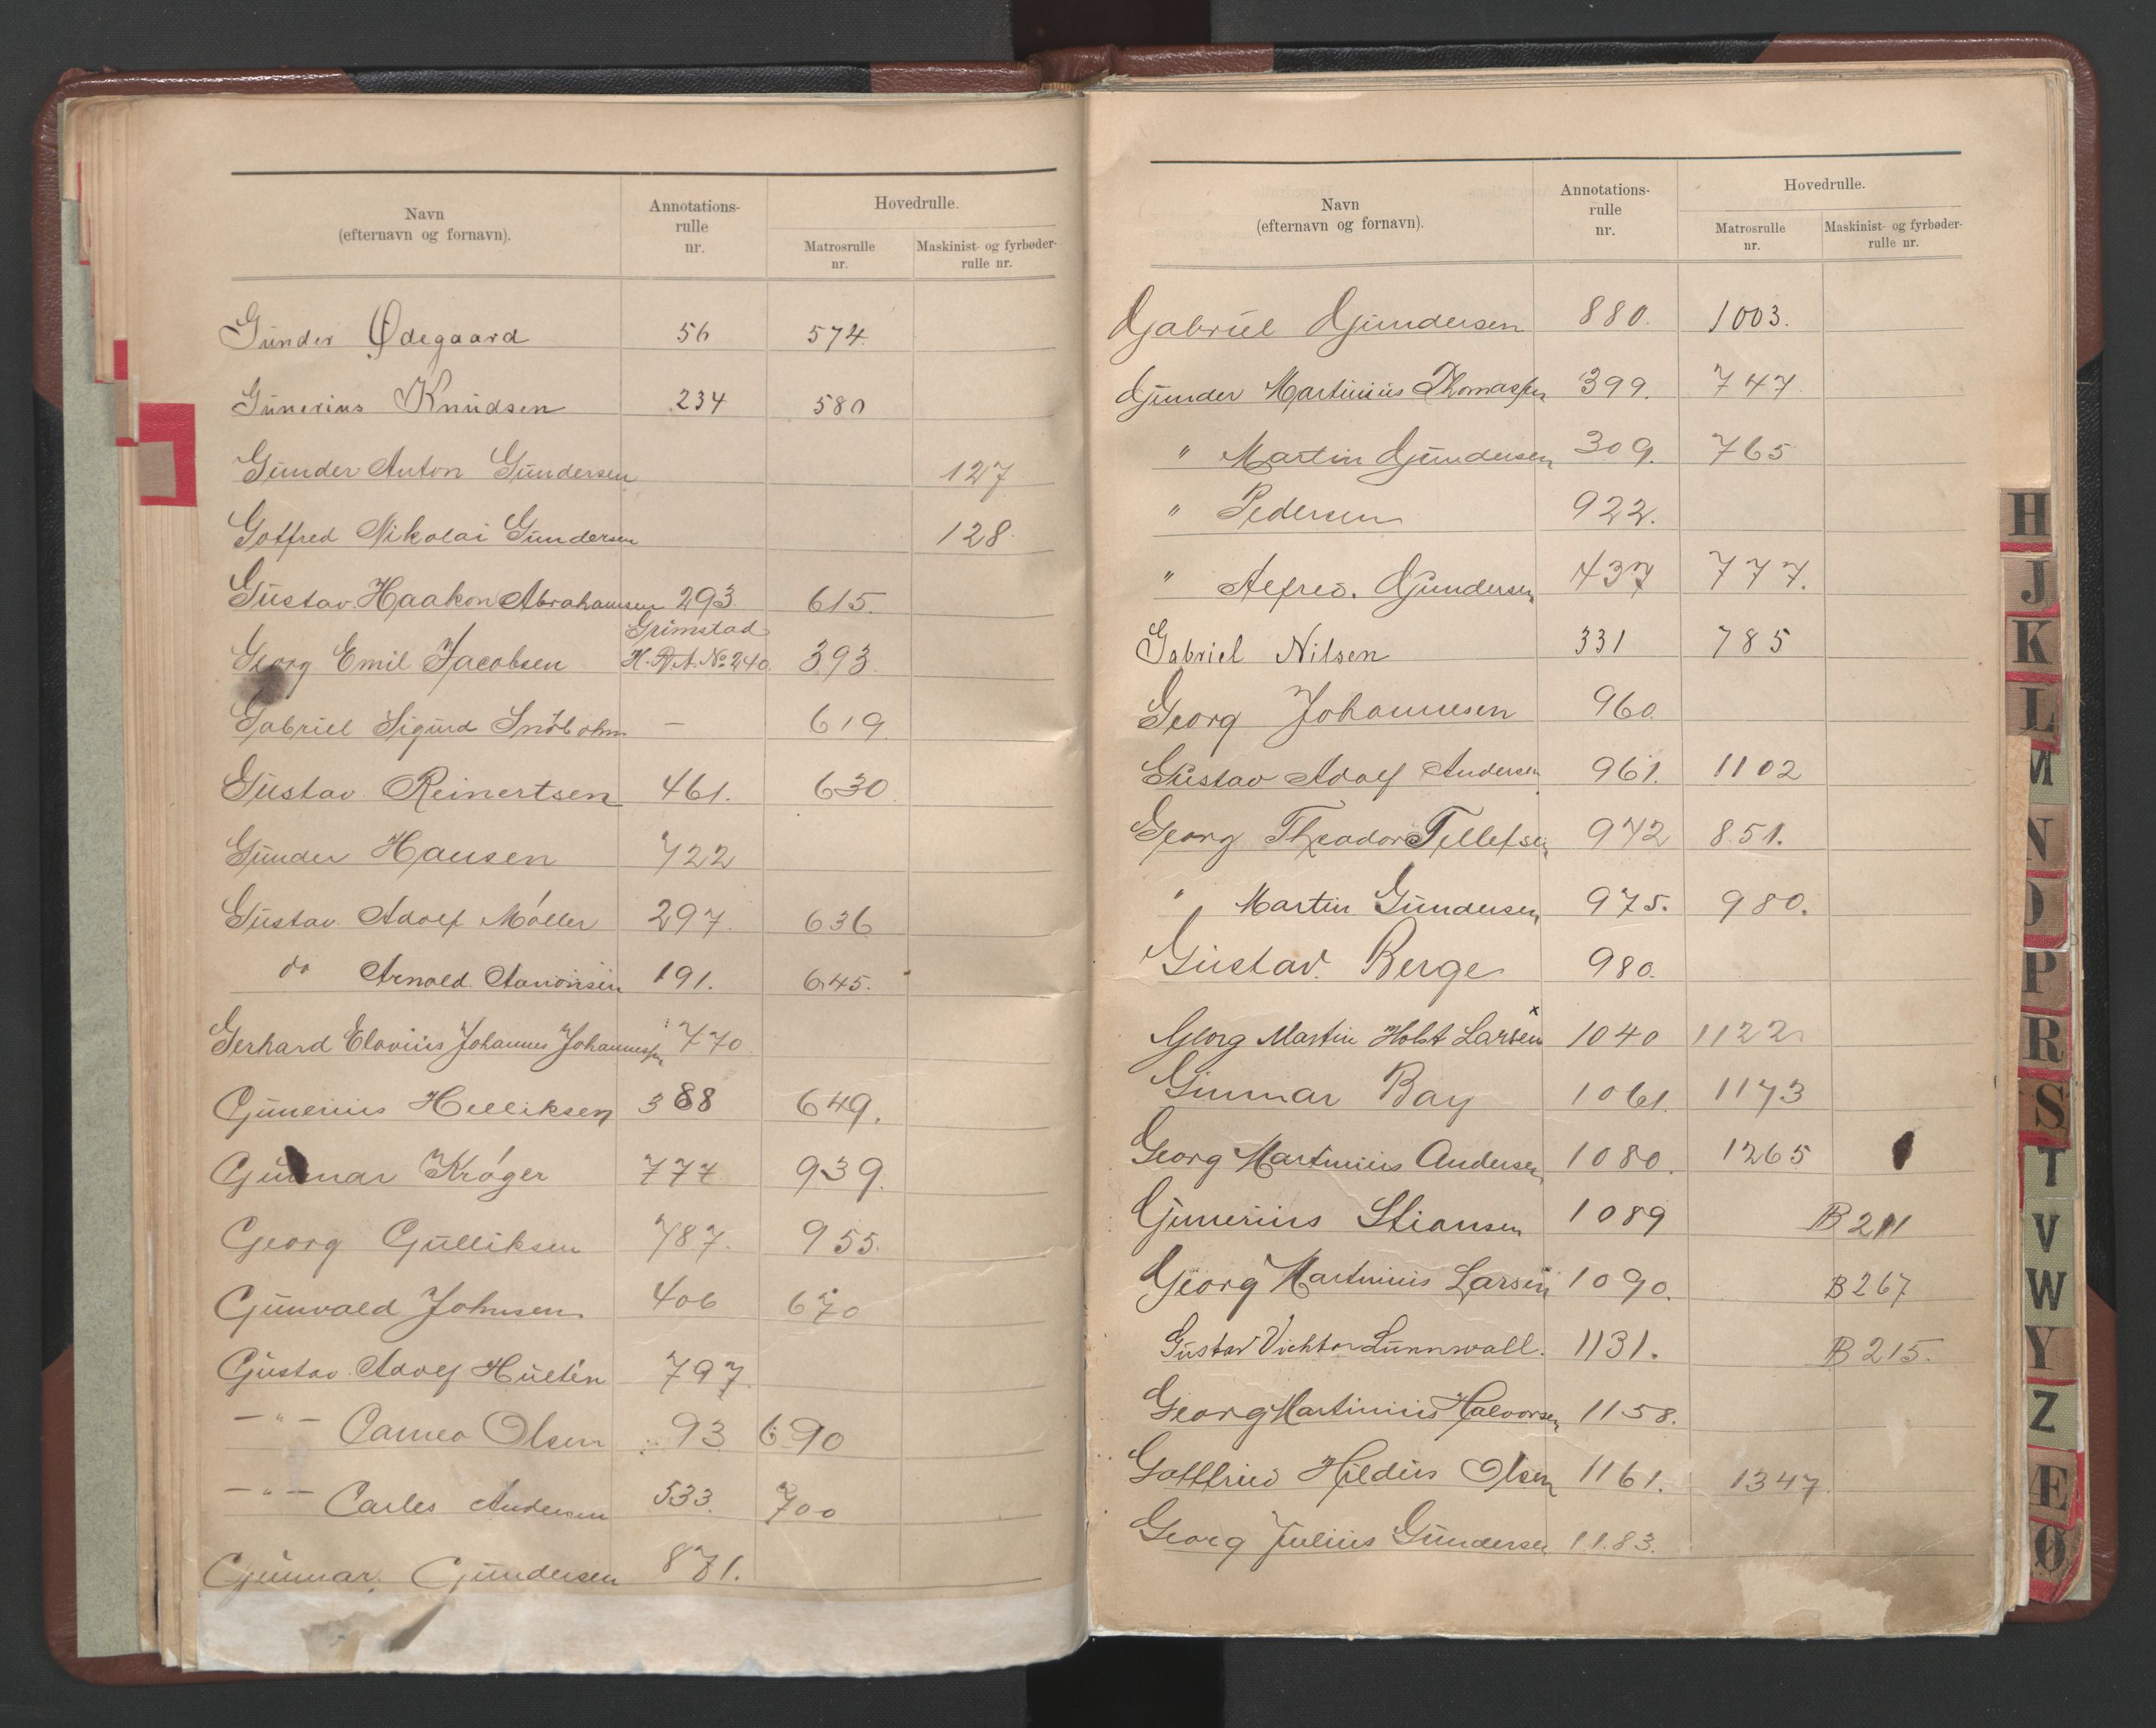 Navn
(efternavn og fornavn).
Annotations-
rulle
nr.
Hovedrulle.
Matrosrulle
nr.
Maskinist- og fyrbøder-
rulle nr.
Gunder Ødegaard 56 574
Gunerius Knudsen 234 580
Gunder Anton Gundersen 127
Gotfred Nikolai Gundersen 128
Gustav Haakon Abrahamsen 293 615.
Grimstad
Georg Emil Jacobsen H.R.A. No 240 393
Gabriel Sigurd — 619
Gustav Reinertsen 461. 630
Gunder Hansen 722
Gustav Adolf Möller 297. 636
do Arnold 191. 645.
Gerhard Elovius Johannes Johannessen 770
Gunerius Helliksen 388 649.
Gunnar Kröger 777 939.
Georg Gulliksen 787. 955.
Gunvald Johnsen 406 670
Gustav Adolf Hultén 797.
— " — Olsen 93 690
— " — Carles Andersen 533. 700
Gunnar Gundersen 871.
Navn
(efternavn og fornavn).
Annotations-
rulle
nr.
Hovedrulle.
Matrosrulle
nr.
Maskinist- og fyrbøder-
rulle nr.
Gabriel Gundersen 880. 1003.
Gunder Martinius Thomassen 399. 747
" Martin Gundersen 309. 765
" Pedersen 922.
" Alfred. Gundersen 437 777.
Gabriel Nilsen 331 785
Georg Johannesen 960
Gustav Adolf Andersen 961. 1102
Georg Theodor Tellefsen 972 851.
" Martin Gundersen 975. 980.
Gustav. Berge 980.
Georg Martin Holst Larsen x 1040 1122
Gunnar Bay 1061. 1173
Georg Martinius Andersen 1080. 1265
Gunerius Stiansen 1089 B 211
Georg Martinius Larsen 1090. B 267
Gustav Vichtor Lunnwall. 1131. B 215.
Georg Martinius Halvorsen 1158.
Gottfried Hildus Olsen 1161. 1347
Georg Julius Gundersen 1183.
H
J
K
L
M
N
O
P
R
S
T
V
W
Y
Z
Æ
Ø